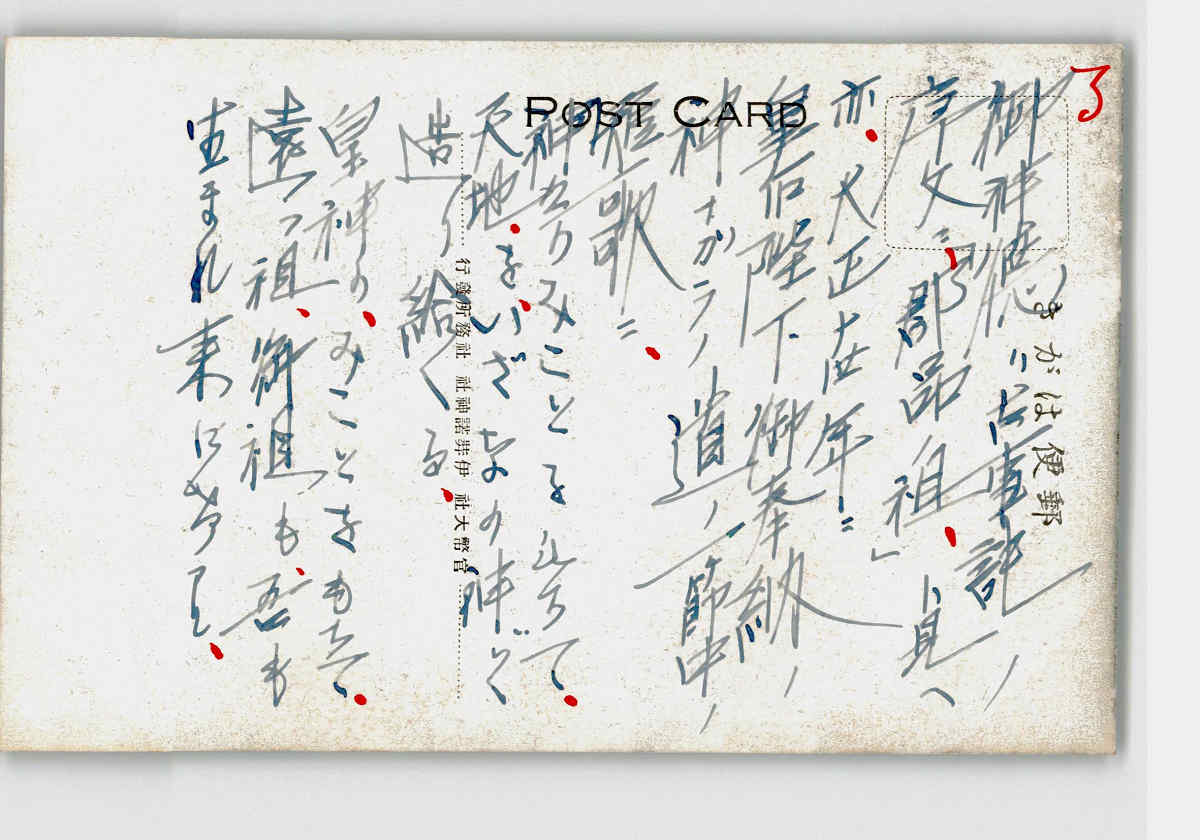 POST CARD
郵便はがき
御神徳ニ古事記ノ
序文ニ「郡品祖」ト見ヘ
亦大正廿年ニ
皇后陛下御奉納ノ
神ナガラノ道ノ節中ノ
歌ニ
みことを
天地をいざなの神と
造り給へる
皇神のみことをもちて
遠つ祖御祖も吾も
生まれ来に
官幣大社 伊弉諾神社 社務所發行